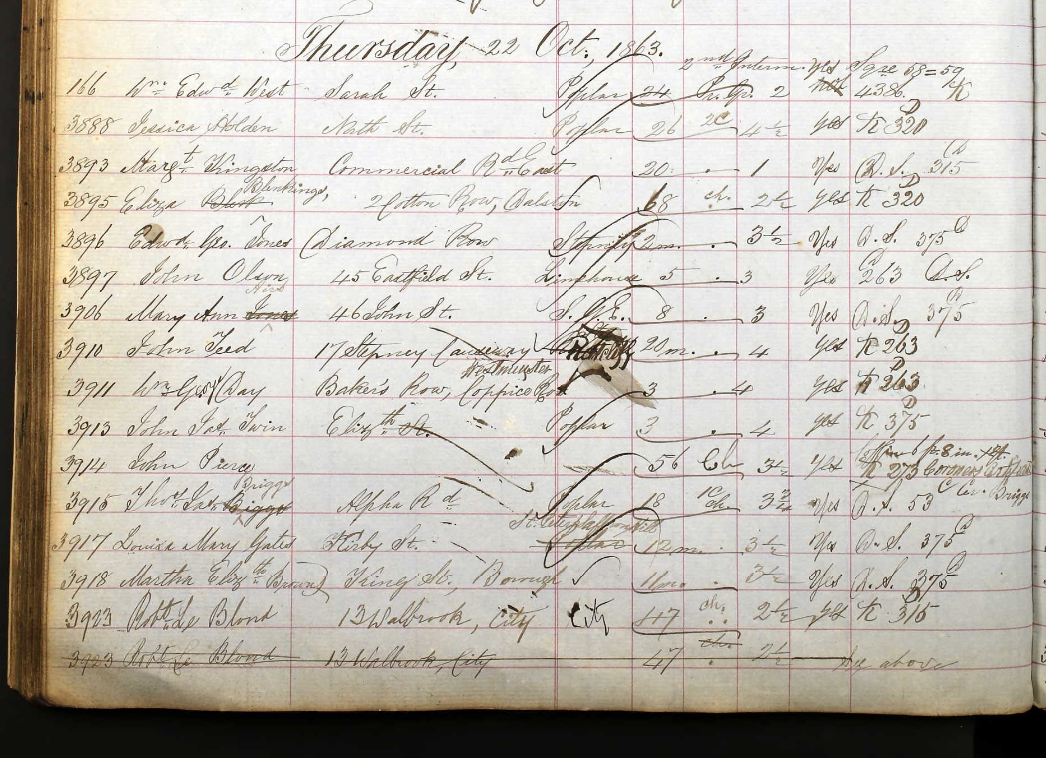 Thursday, 22 Oct. 1863.
2nd Interm. Yes Sqre 58=59
166 Wm. Edwd. West Sarah St. Poplar 24 2 4386 K
3888 Jessica Holden North St. Poplar 26 4½ yes K 320
3893 Margt. Kingston Commercial Rd. East 20 1 Yes D.S. 315
Blenkings,
3895 Eliza 2 Cotton Row, Dalston 68 ch. 2½ yes K 320
3896 Edwd. Geo. Jones Diamond Row Stepney 2m. 3½ Yes D.S. 375
3897 John Olson 45 Eastfield St. Limehouse 5 3 Yes 263 D.S.
3906 Mary Ann Jones 46 John St. S.G.E. 8 3 Yes D.S. 375
3910 John Teed 17 Stepney Causeway Ratcliff 20m. 4 yes K 263
Westminster
3911 Wm. Day Baker's Row, Coppice Row 3 4 yes K 263
3913 John Jas. Twin Elizth. St. Poplar 3 4 yes K 375
3914 John Pierce 56 Ch 3½ yes K 273 Coroners
Briggs
3915 Thos. Jas. Briggs Alpha Rd. Poplar 18 ch 3¾ Yes D.S. 53 Briggs
3917 Louisa Mary Gates Kirby St. Poplar 12m. 3½ Yes D.S. 375
3918 Martha Elizth. Brown King St., Borough 3½ Yes D.S. 375
3923 Robt. Le Blond 13 Walbrook, City City 47 ch. 2½ yes K 315
3923 Robt. Le Blond 13 Walbrook, City 47 2½ See above